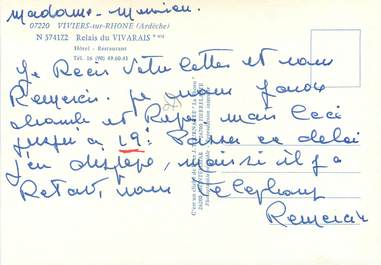 Madame - Monsieur.
07220 VIVIERS-sur-RHONE (Ardèche)
N 374122 Relais du VIVARAIS
Hôtel - Restaurant
Tél. 16 (90) 49.60.03
Je Recoi Votre lettre et vous
Remercie. je vous
chambre et Repas mais Ceci
jusqu'a 19h Passer ce delai
j'en dispose, mais si il y a
Retard, vous Telephoner
Remercie